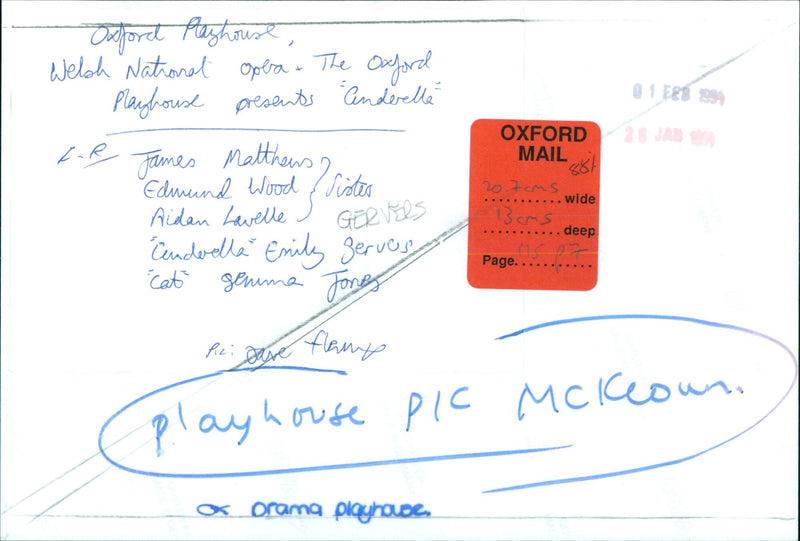 Oxford Playhouse,
Welsh National Opera + The Oxford
Playhouse presents "Cinderella"
L-R James Matthews
Edmund Wood } Sister
Aidan Lavelle
GERVERS
"Cinderella" Emily Gervers
"Cat" Gemma Jones
Pic: Dave Fleming
01 FEB 1994
28 JAN 1994
OXFORD
MAIL
88%
20.7cms wide
13cms deep
Page. MS p7
playhouse PIC McKeown.
OX Drama playhouse.